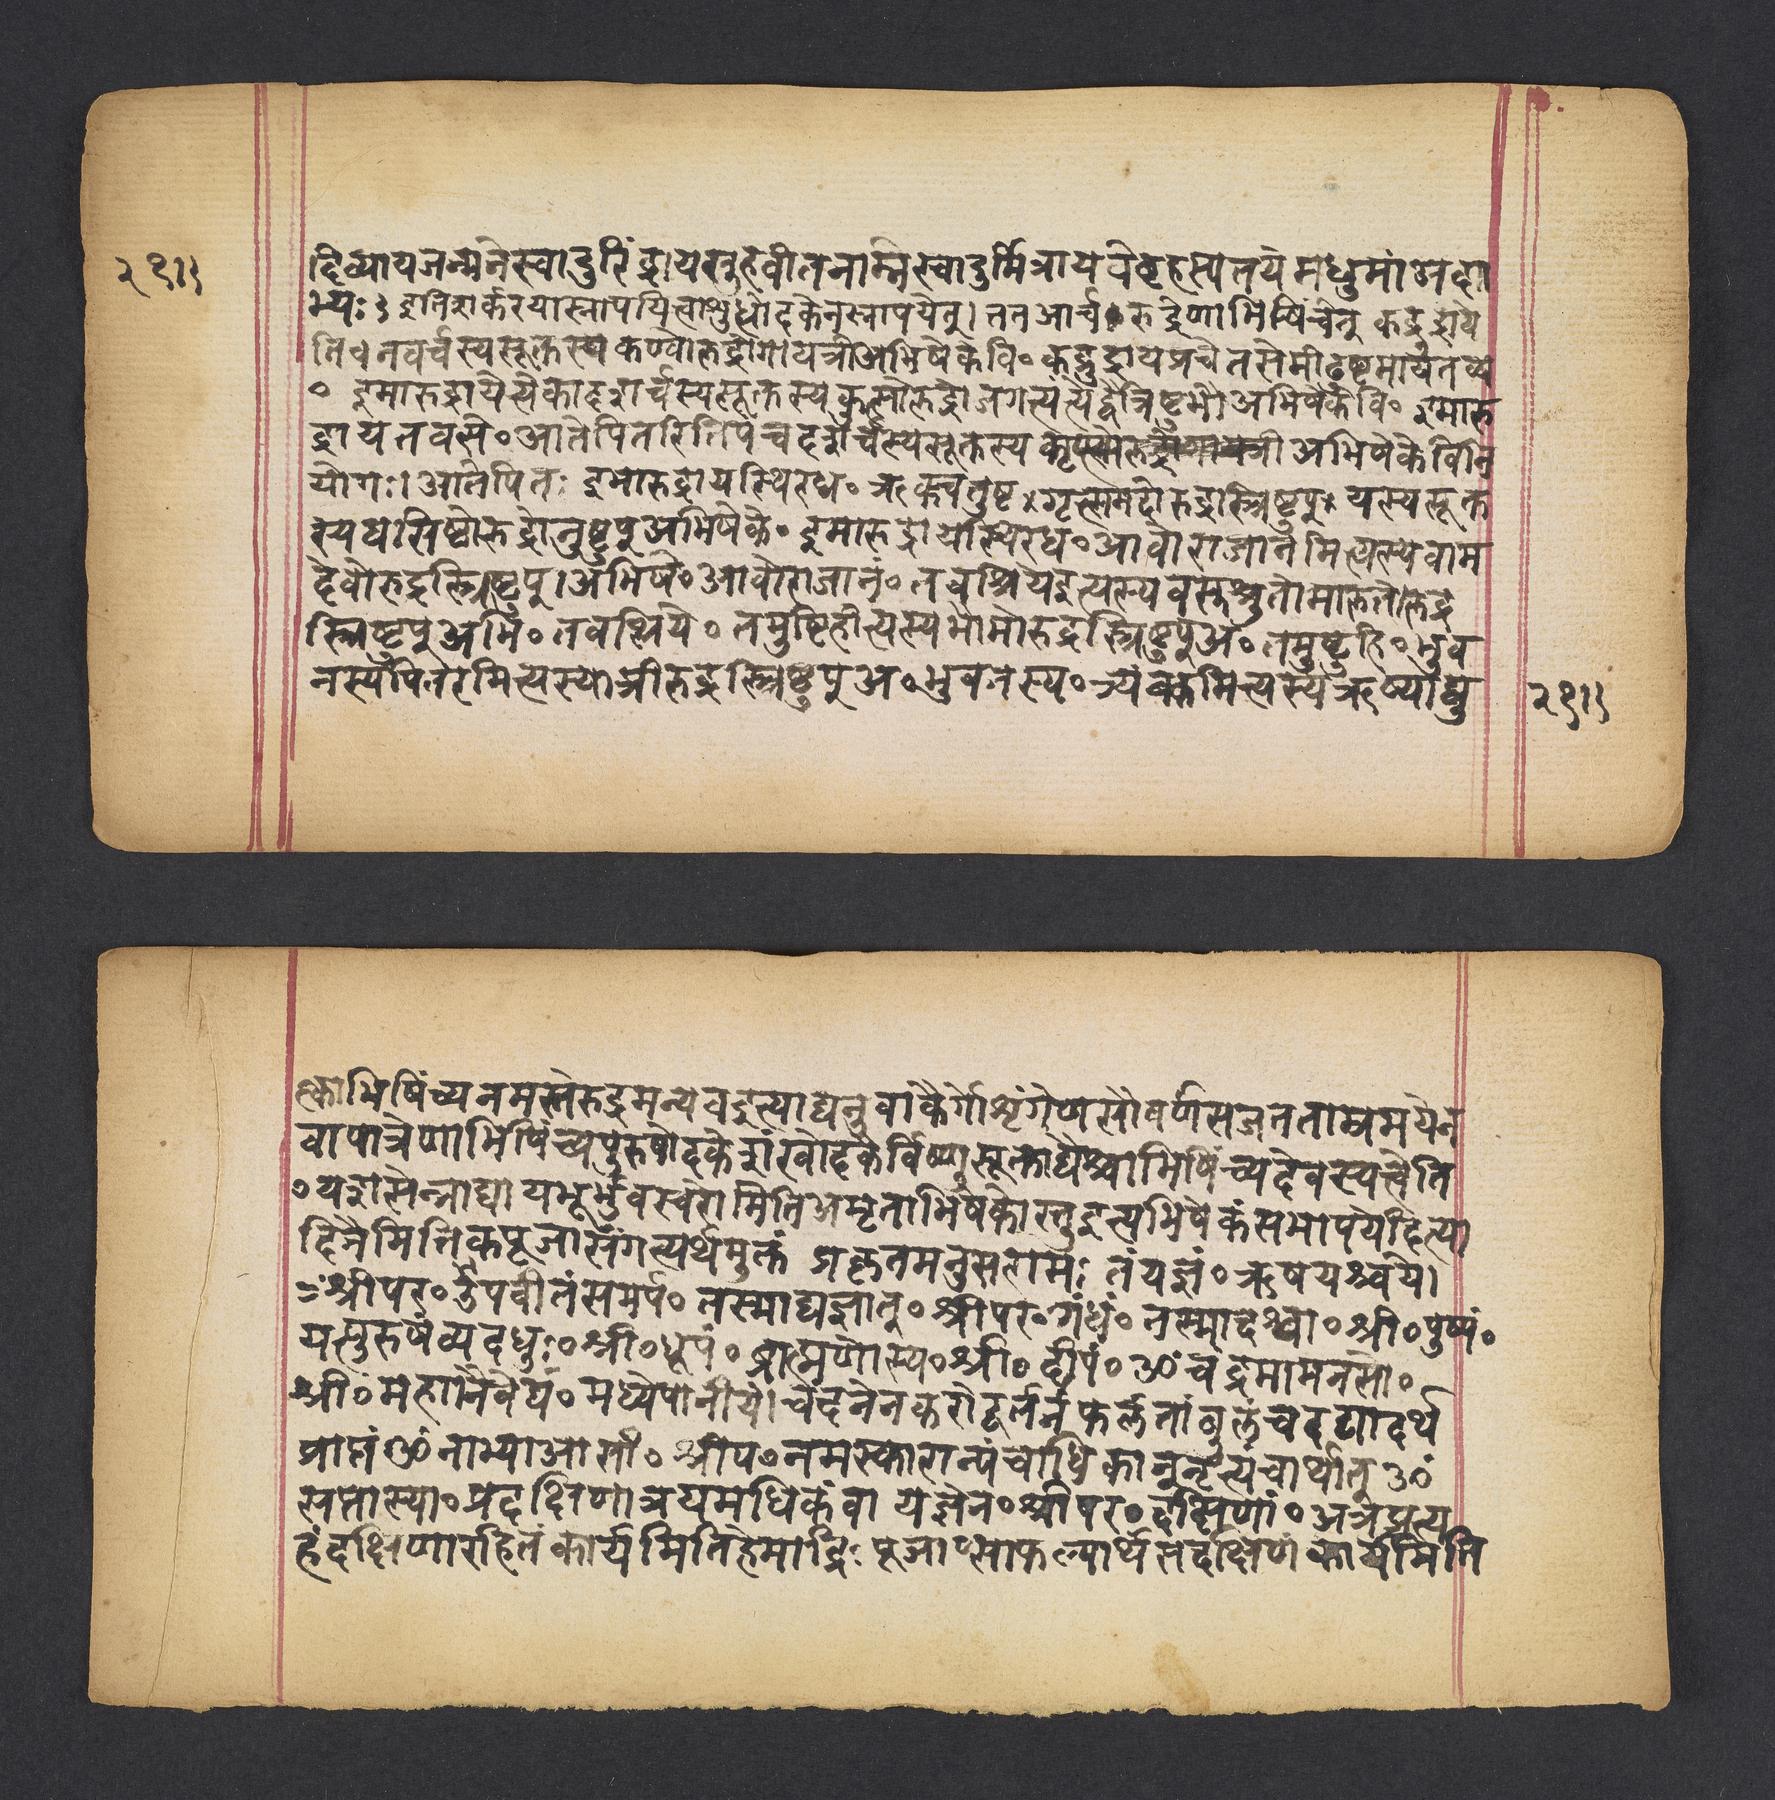 २१।१
दिव्यायजन्मनेस्वादुरिंद्रायसुहवीतनाम्नेस्वादुर्मित्रायवरुणायबृहस्पतयेमधुमांअदा
भ्यः१ इतिशर्करयास्नापयित्वाशुद्धोदकेनस्नापयेत्। ततआर्च॰रुद्रेणाभिषिंचेत् कद्रुद्राये
तिनवर्चस्यसूक्तस्यकण्वोरुद्रोगायत्रीअभिषेकेवि॰ कद्रुद्रायप्रचेतसेमीढुष्टमायतव्य
॰ इमारुद्रायेत्येकादशर्चस्यसूक्तस्यकुत्सोरुद्रोजगत्यंत्येद्वेत्रिष्टुभौअभिषेकेवि॰ इमारु
द्रायतवसे॰आतेपितरितिपंचदशर्चस्यसूक्तस्य अभिषेकेविनि
योगः।आतेपित॰ इमारुद्रायस्थिरध॰ ऋक्चतुष्ट गृत्समदोरुद्रस्त्रिष्टुप् यस्यसूक्त
स्यवसिष्टोरुद्रोनुष्टुप्अभिषेके॰ इमारुद्रायस्थिरध॰आवोराजानमित्यस्यवाम
देवोरुद्रस्त्रिष्टुप्।अभिषे॰आवोराजानं॰ तवश्रियेइत्यस्यवसुश्रुतोमारुतोरुद्र
स्त्रिष्टुप्अभि॰ तवश्रिये॰ तमुष्टिहीत्यस्यभौमोरुद्रस्त्रिष्टुप्अ॰तमुष्टुहि॰भुव
नस्यपितरमित्यस्य रुद्रस्त्रिष्टुप्अ॰भुवनस्य॰त्र्यंबकमित्यस्यऋष्याद्यु
२१।१
क्त्वाभिषिंच्यनमस्तेरुद्रमन्यवइत्याद्यनुवाकैर्गोशृंगेणसौवर्णराजतताम्रमयेन
वापात्रेणाभिषिंच्यपुरुषोदकेशंखोदकैर्विष्णुसूक्ताद्यैश्चाभिषिंच्यदेवस्यत्वेति
॰यशसेन्नाद्यायभूर्भुवस्वरोमितिअमृताभिषेकोस्तुइत्यभिषेकंसमापयेदित्या
दिनैमित्तिकपूजासंगत्यर्थमुक्तं प्रकृतमनुसरामः तंयज्ञं॰ऋषयश्चये।
श्रीपर॰ उपवीतंसमर्प॰ तस्माद्यज्ञात्॰श्रीपर॰गंधं॰तस्मादश्वा॰श्री॰पुष्पं॰
यत्पुरुषंव्यदधुः॰श्री॰धूपं॰ब्राह्मणोस्य॰श्री॰ दीपं॰ॐचंद्रमामनसो॰
श्री॰महानैवेद्यं॰मध्येपानीयं।चंदनेनकरोद्वर्तनंफलंतांबूलंचदद्यादर्थ
प्राप्तंॐनाभ्याआसी॰श्रीप॰नमस्कारान्पंचाधिकान्नृत्यंचार्थात्ॐ
सप्तास्या॰प्रदक्षिणात्रयमधिकंवा यज्ञेन॰श्रीपर॰दक्षिणां॰अत्रप्रत्य
हंदक्षिणारहितंकार्यमितिहेमाद्रिः पूजासाफल्यार्थंसदक्षिणंकार्यमिति